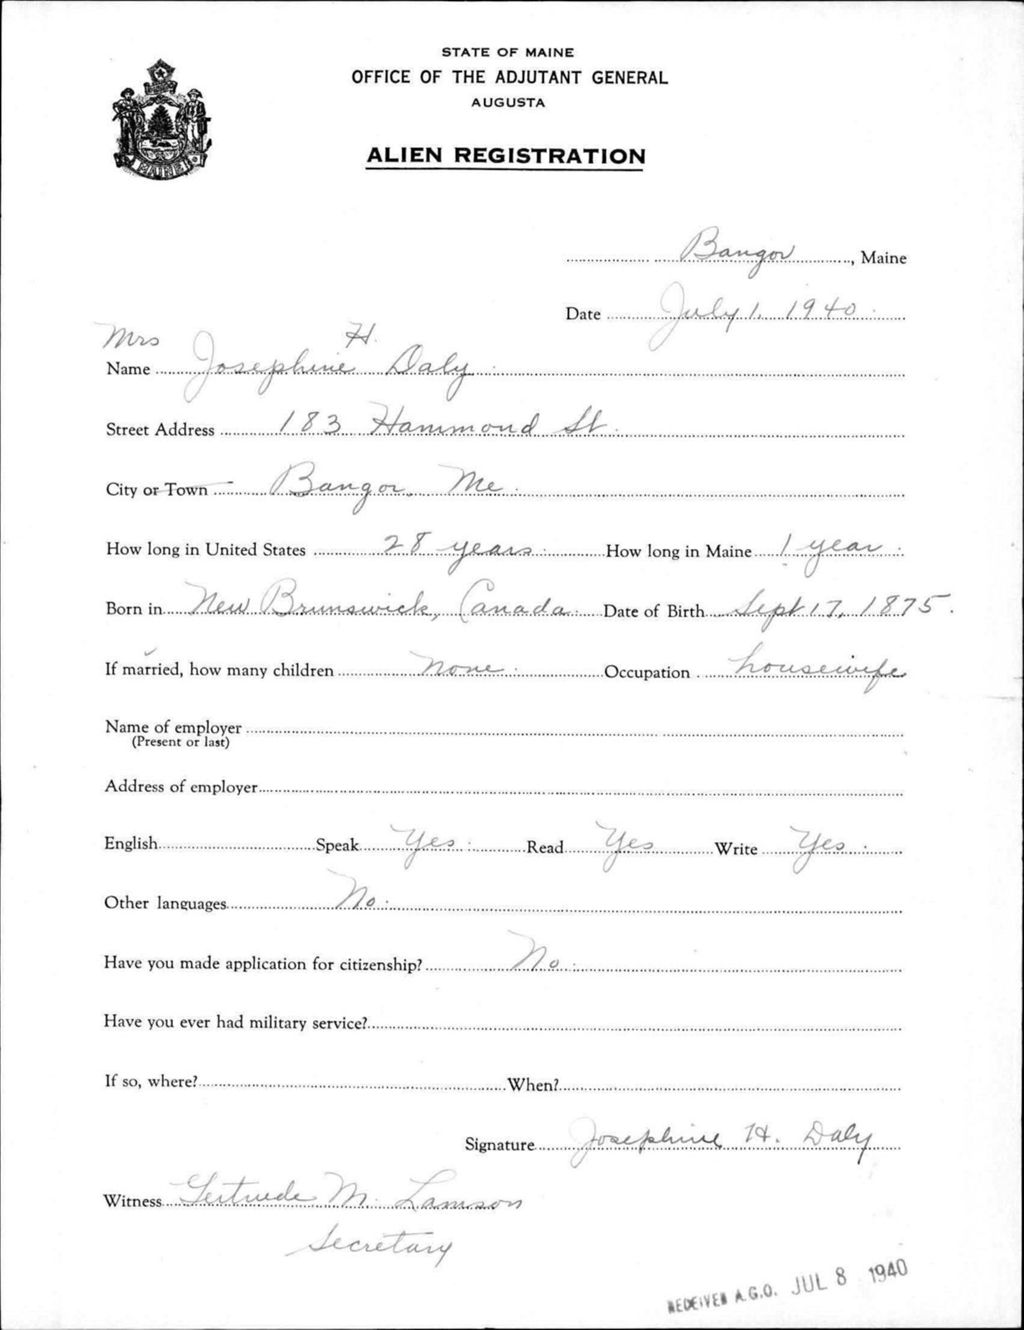 STATE OF MAINE
OFFICE OF THE ADJUTANT GENERAL
AUGUSTA
ALIEN REGISTRATION
MAINE
Bangor, Maine
Date July 1, 1940.
Mrs H.
Name Josephine Daly
Street Address 183 Hammond St.
City or Town Bangor, Me.
How long in United States 28 years. How long in Maine 1 year.
Born in New Brunswick, Canada. Date of Birth Sept 17, 1875.
If married, how many children None. Occupation housewife
Name of employer
(Present or last)
Address of employer
English Speak Yes. Read Yes Write Yes.
Other languages No.
Have you made application for citizenship? No.
Have you ever had military service?
If so, where? When?
Signature Josephine H. Daly
Witness Gertrude M. Lamson
Secretary
RECEIVED A.G.O. JUL 8 1940